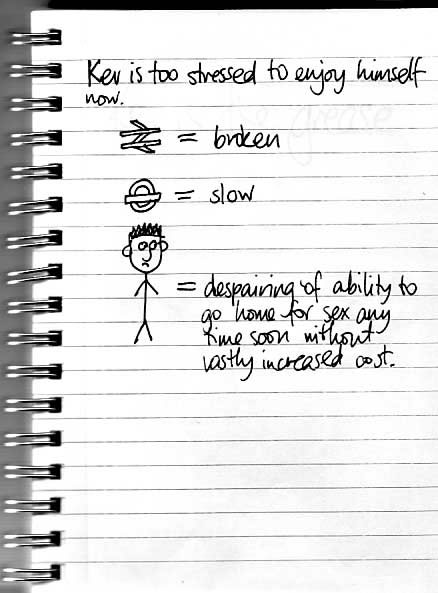 Kev is too stressed to enjoy himself
now.
= broken
= slow
= despairing of ability to
go home for sex any
time soon without
vastly increased cost.